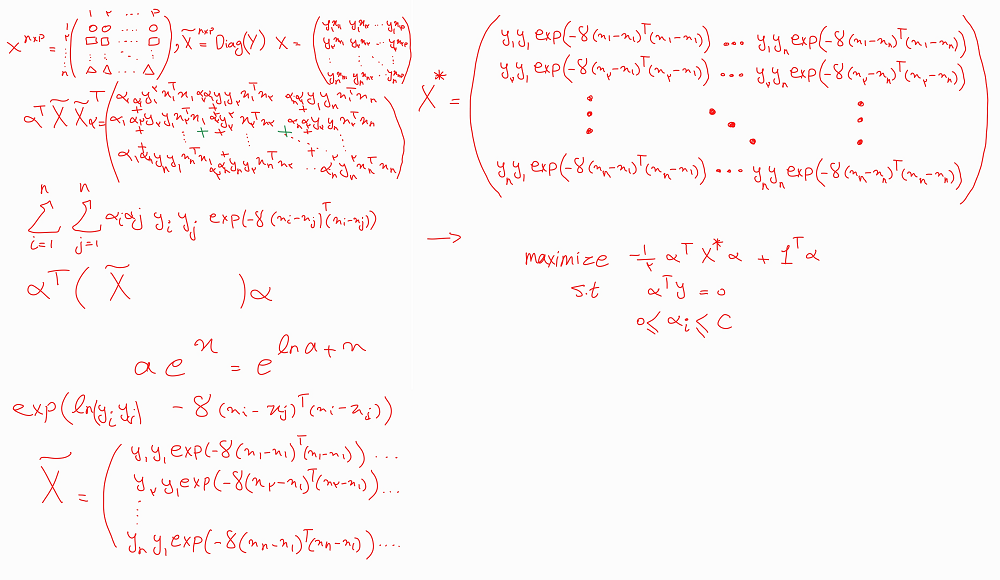 X^{n×p} = ( ۱ ۲ ... p ; ۱ ○ ○ ... ○ ; ۲ □ □ ... □ ; ⋮ ; n △ △ ... △ ), X̃^{n×p} = Diag(Y) X = ( y₁x₁₁ y₁x₁₂ ... y₁x₁p ; y₂x₂₁ y₂x₂₂ ... y₂x₂p ; ⋮ ; yₙxₙ₁ yₙxₙ₂ ... yₙxₙp )
α^T X̃ X̃^T α = ( α₁α₁y₁^۲x₁^Tx₁ + α₁α₂y₁y₂x₁^Tx₂ + ... α₁αₙy₁yₙx₁^Txₙ
+ α₁α₂y₂y₁x₂^Tx₁ + α₂^۲y₂^۲x₂^Tx₂ + ... α₂αₙy₂yₙx₂^Txₙ
⋮
α₁αₙyₙy₁xₙ^Tx₁ + α₂αₙyₙy₂xₙ^Tx₂ + ... αₙ^۲yₙ^۲xₙ^Txₙ )
∑_{i=1}^{n} ∑_{j=1}^{n} αᵢαⱼ yᵢ yⱼ exp(-γ(xᵢ-xⱼ)^T(xᵢ-xⱼ))
α^T ( X̃ ) α
a e^x = e^{ln a + x}
exp(ln(yᵢyⱼ) - γ(xᵢ-xⱼ)^T(xᵢ-xⱼ))
X̃ = ( y₁y₁exp(-γ(x₁-x₁)^T(x₁-x₁)) ...
y₂y₁exp(-γ(x₂-x₁)^T(x₂-x₁)) ...
⋮
yₙy₁exp(-γ(xₙ-x₁)^T(xₙ-x₁)) ....
X* = ( y₁y₁exp(-γ(x₁-x₁)^T(x₁-x₁)) ... y₁yₙexp(-γ(x₁-xₙ)^T(x₁-xₙ))
y₂y₁exp(-γ(x₂-x₁)^T(x₂-x₁)) ... y₂yₙexp(-γ(x₂-xₙ)^T(x₂-xₙ))
⋮ ⋱ ⋮
yₙy₁exp(-γ(xₙ-x₁)^T(xₙ-x₁)) ... yₙyₙexp(-γ(xₙ-xₙ)^T(xₙ-xₙ)) )
→ maximize -۱/۲ α^T X* α + 1^T α
s.t α^T y = ۰
۰ ≤ αᵢ ≤ C